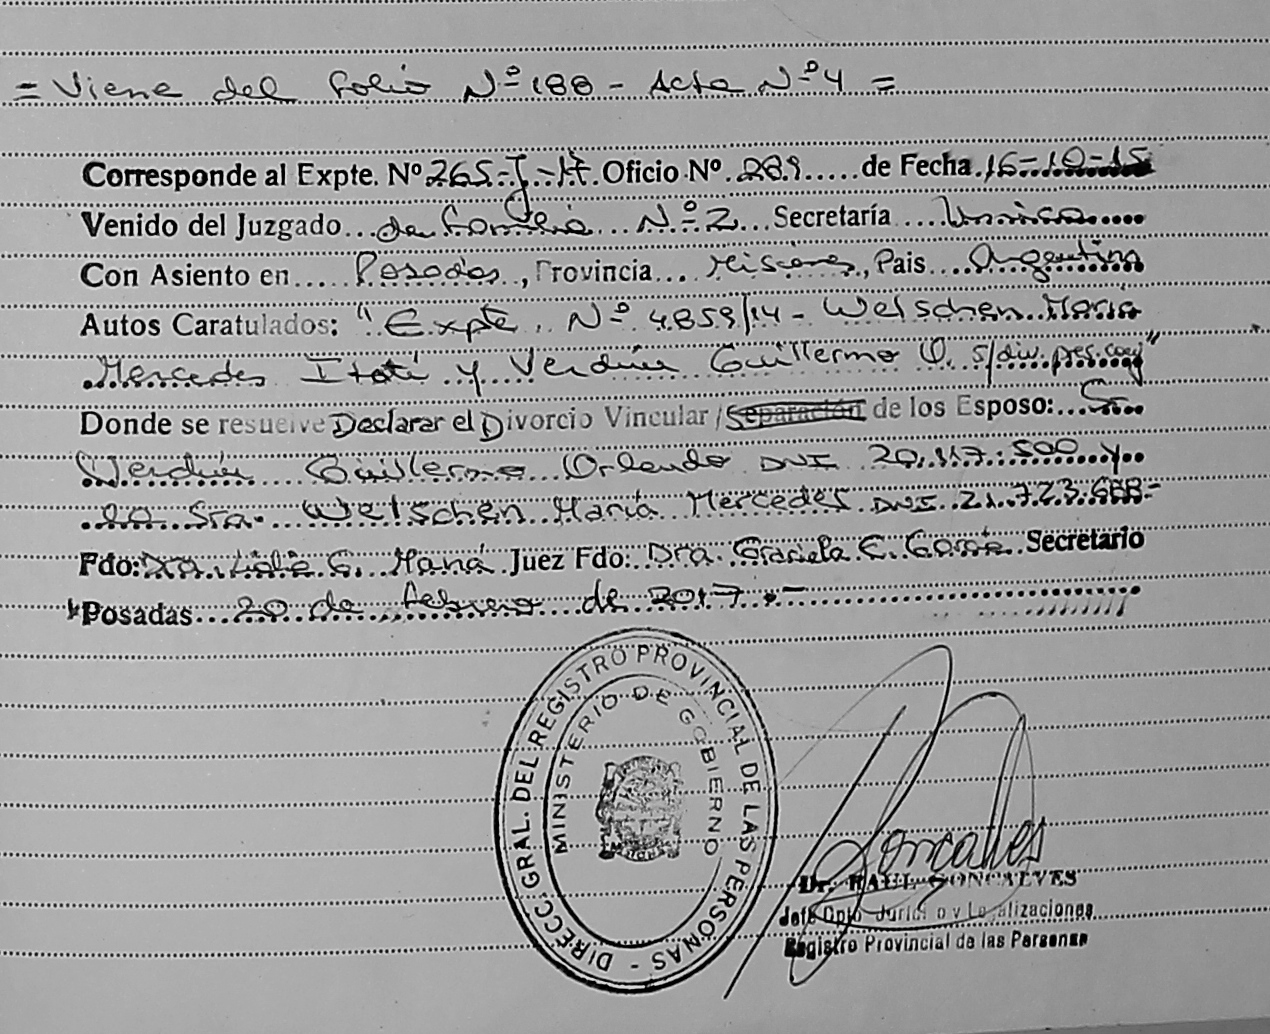 = Viene del folio Nº 188 - Acta Nº 4 =
Corresponde al Expte. Nº 265-J-17. Oficio Nº. 289..... de Fecha.16-10-15
Venido del Juzgado...de Familia Nº 2... Secretaría ...Unica.....
Con Asiento en..... Posadas., Provincia... Misiones, Pais ...Argentina
Autos Caratulados: "Expte. Nº 4859/14 - Welschen María
Mercedes Itatí y Verdún Guillermo O. s/div. pres. conj"
Donde se resuelve Declarar el Divorcio Vincular / Separación de los Esposo:...Sr....
Verdún Guillermo Orlando DNI 20.117.500 y..
la Sra. Welschen María Mercedes DNI 21.723.688.-
Fdo: Dra. G. Juez Fdo: Dra. Graciela E. Secretario
Posadas...20 de febrero de 2017.-
DIRECC. GRAL. DEL REGISTRO PROVINCIAL DE LAS PERSONAS -
MINISTERIO DE GOBIERNO
Dr. RAUL GONCALVES
Jefe Dpto. Juridico y Legalizaciones
Registro Provincial de las Personas